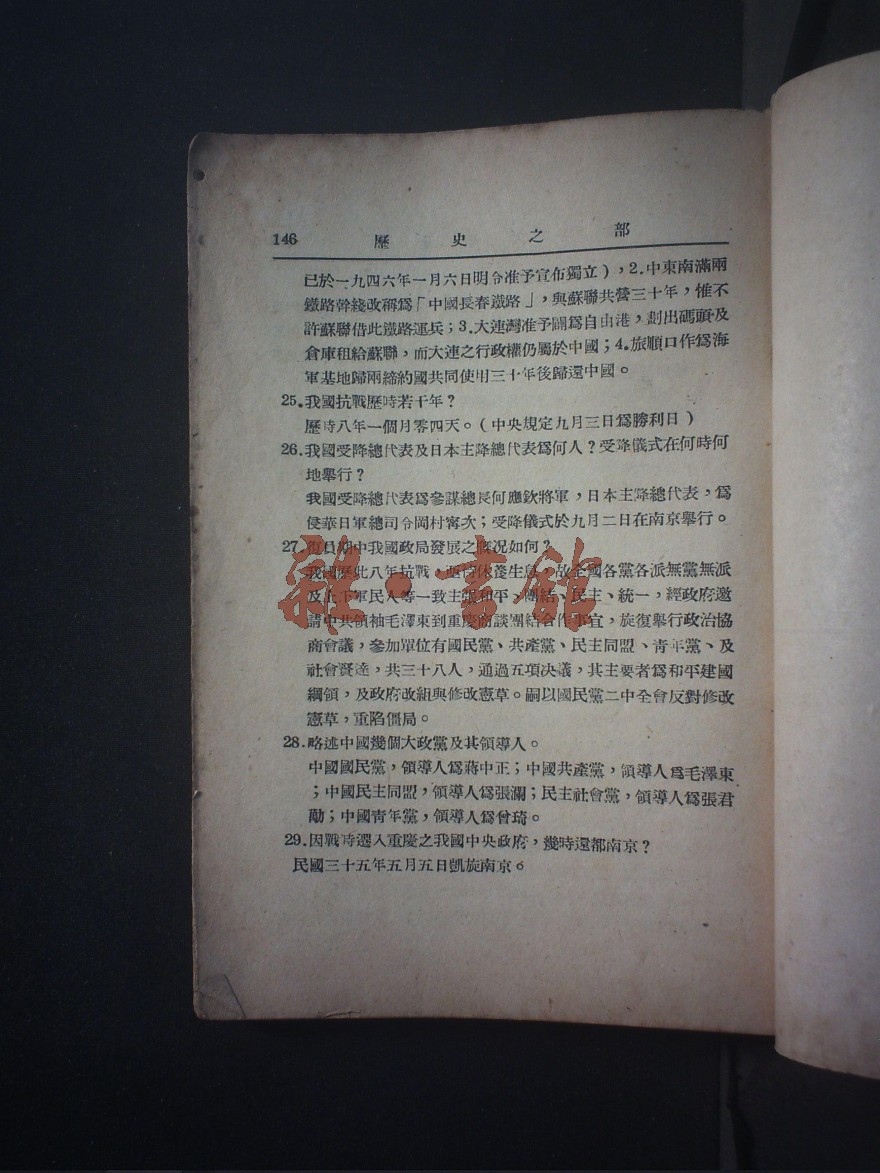 146 歷史之部
已於一九四六年一月六日明令准予宣布獨立），2.中東南滿兩
鐵路幹綫改稱爲「中國長春鐵路」，與蘇聯共營三十年，惟不
許蘇聯借此鐵路運兵；3.大連灣准予闢爲自由港，劃出碼頭及
倉庫租給蘇聯，而大連之行政權仍屬於中國；4.旅順口作爲海
軍基地歸兩締約國共同使用三十年後歸還中國。
25.我國抗戰歷時若干年？
歷時八年一個月零四天。（中央規定九月三日爲勝利日）
26.我國受降總代表及日本主降總代表爲何人？受降儀式在何時何
地舉行？
我國受降總代表爲參謀總長何應欽將軍，日本主降總代表，爲
侵華日軍總司令岡村寧次；受降儀式於九月二日在南京舉行。
27.復員期中我國政局發展之概况如何？
我國歷此八年抗戰，亟待休養生息，故全國各黨各派無黨無派
及上下軍民人等一致主張和平、團結、民主、統一，經政府邀
請中共領袖毛澤東到重慶商談團結合作事宜，旋復舉行政治協
商會議，參加單位有國民黨、共產黨、民主同盟、靑年黨、及
社會賢達，共三十八人，通過五項決議，其主要者爲和平建國
綱領，及政府改組與修改憲草。嗣以國民黨二中全會反對修改
憲草，重陷僵局。
28.略述中國幾個大政黨及其領導人。
中國國民黨，領導人爲蔣中正；中國共產黨，領導人爲毛澤東
；中國民主同盟，領導人爲張瀾；民主社會黨，領導人爲張君
勱；中國靑年黨，領導人爲曾琦。
29.因戰時遷入重慶之我國中央政府，幾時還都南京？
民國三十五年五月五日凱旋南京。
雜·書館